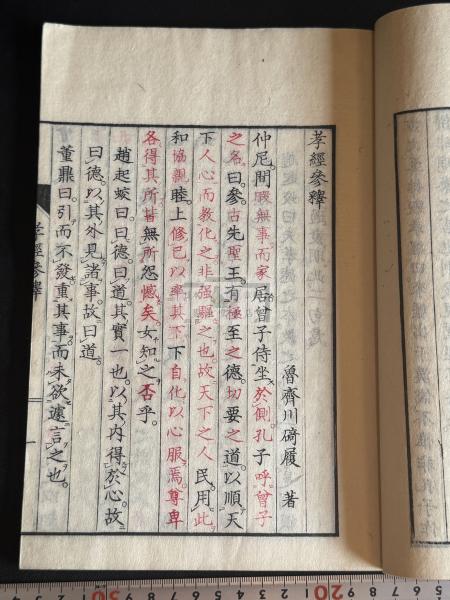 孝經參釋
魯齊川碕履 著
仲尼間暇無事而家居曾子侍坐於側孔子呼曾子
之名曰參古先聖王有極至之德切要之道以順天
下人心而教化之非强驅之也故天下之人民用此
和協親睦上修己以率其下下自化以心服焉尊卑
各得其所皆無所怨憾矣女知之否乎
趙起蛟曰曰德曰道其實一也以其内得於心故
曰德以其外見諸事故曰道
董鼎曰引而不發重其事而未欲遽言之也
孝經參釋
一
20
30